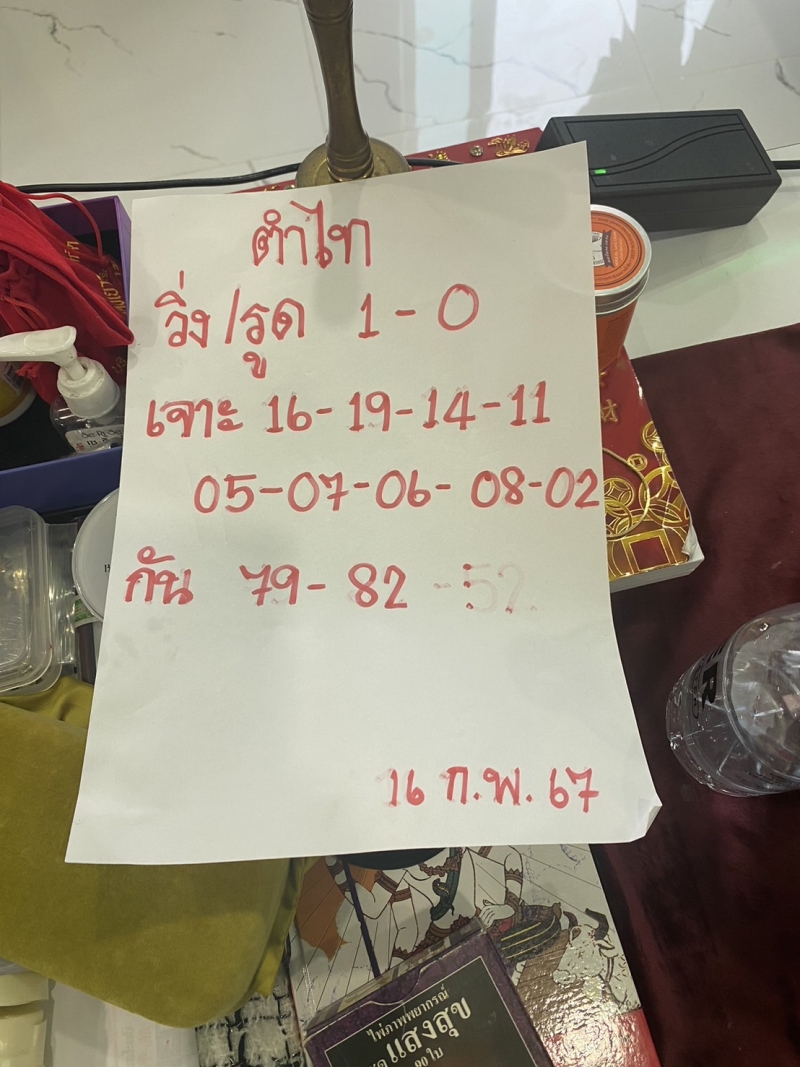 ตำไท
วิ่ง/รูด 1-0
เจาะ 16-19-14-11
05-07-06-08-02
กัน 79-82-52
16 ก.พ. 67
ไพ่ภาพพยากรณ์
แสงสุข
90 ใบ